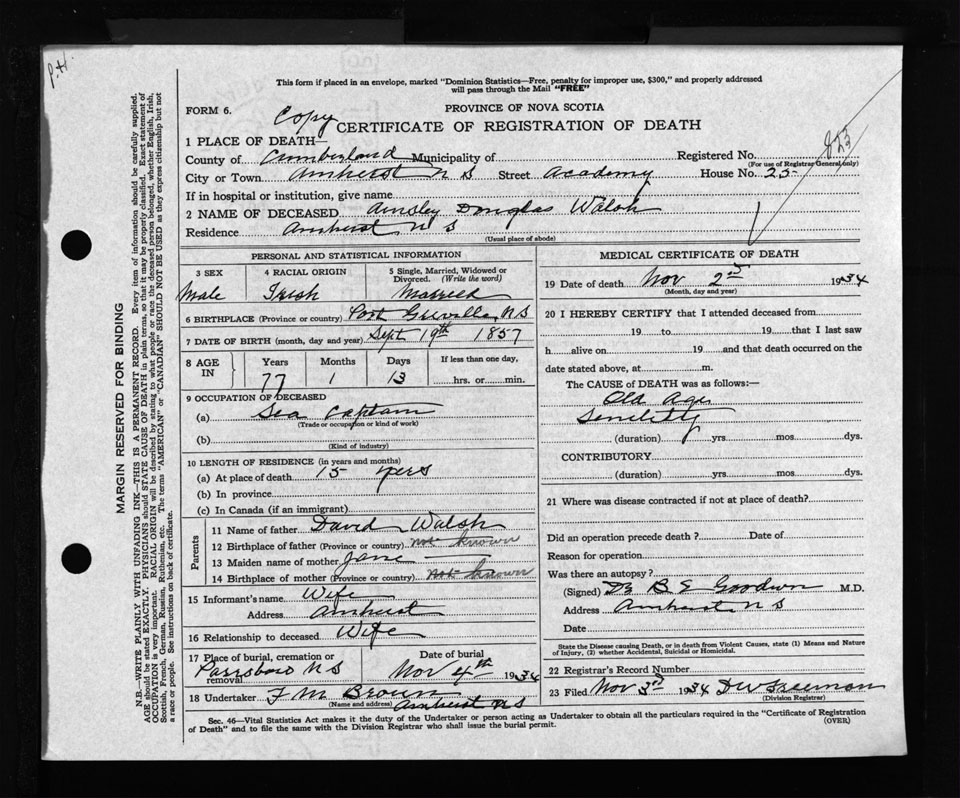 P.H.
This form if placed in an envelope, marked "Dominion Statistics—Free, penalty for improper use, $300," and properly addressed
will pass through the Mail "FREE"
FORM 6.
PROVINCE OF NOVA SCOTIA
Copy
CERTIFICATE OF REGISTRATION OF DEATH
1 PLACE OF DEATH—
County of Cumberland Municipality of Registered No.
(For use of Registrar General only)
City or Town Amherst N S Street Academy House No. 25
If in hospital or institution, give name
2 NAME OF DECEASED Ainsley Douglas Walsh
Residence Amherst N S
(Usual place of abode)
PERSONAL AND STATISTICAL INFORMATION
3 SEX 4 RACIAL ORIGIN 5 Single, Married, Widowed or
Divorced. (Write the word)
Male Irish Married
6 BIRTHPLACE (Province or country) Port Greville, N S
7 DATE OF BIRTH (month, day and year) Sept 19th 1857
8 AGE IN Years Months Days If less than one day,
77 1 13 hrs. or min.
9 OCCUPATION OF DECEASED
(a) Sea Captain
(Trade or occupation or kind of work)
(b)
(Kind of industry)
10 LENGTH OF RESIDENCE (in years and months)
(a) At place of death 15 yers
(b) In province
(c) In Canada (if an immigrant)
Parents
11 Name of father David Walsh
12 Birthplace of father (Province or country) not known
13 Maiden name of mother Jane
14 Birthplace of mother (Province or country) not known
15 Informant's name Wife
Address Amherst
16 Relationship to deceased Wife
17 Place of burial, cremation or removal Date of burial
Parrsboro N S Nov 4th 1934
18 Undertaker F M Brown
(Name and address) Amherst N S
MEDICAL CERTIFICATE OF DEATH
19 Date of death Nov 2nd 1934
(Month, day and year)
20 I HEREBY CERTIFY that I attended deceased from
19 to 19 that I last saw
h alive on 19 and that death occurred on the
date stated above, at m.
The CAUSE of DEATH was as follows:—
Old Age
Senility
(duration) yrs. mos. dys.
CONTRIBUTORY
(duration) yrs. mos. dys.
21 Where was disease contracted if not at place of death?
Did an operation precede death? Date of
Reason for operation
Was there an autopsy?
(Signed) Dr B E Goodwin M.D.
Address Amherst N S
Date
State the Disease causing Death, or in death from Violent Causes, state (1) Means and Nature
of Injury, (2) whether Accidental, Suicidal or Homicidal.
22 Registrar's Record Number
23 Filed Nov 3rd 1934 D W Freeman
(Division Registrar)
Sec. 46—Vital Statistics Act makes it the duty of the Undertaker or person acting as Undertaker to obtain all the particulars required in the "Certificate of Registration
of Death" and to file the same with the Division Registrar who shall issue the burial permit. (OVER)
MARGIN RESERVED FOR BINDING
N.B.—WRITE PLAINLY WITH UNFADING INK—THIS IS A PERMANENT RECORD. Every item of information should be carefully supplied.
AGE should be stated EXACTLY. PHYSICIANS should STATE CAUSE OF DEATH in plain terms, so that it may be properly classified. Exact statement of
OCCUPATION is very important. RACIAL ORIGIN will be described by stating to what people or race the deceased person belonged, whether English, Irish,
Scottish, French, German, Russian, Ruthenian, etc. The terms "AMERICAN" or "CANADIAN" SHOULD NOT BE USED as they express citizenship but not
a race or people. See instructions on back of certificate.